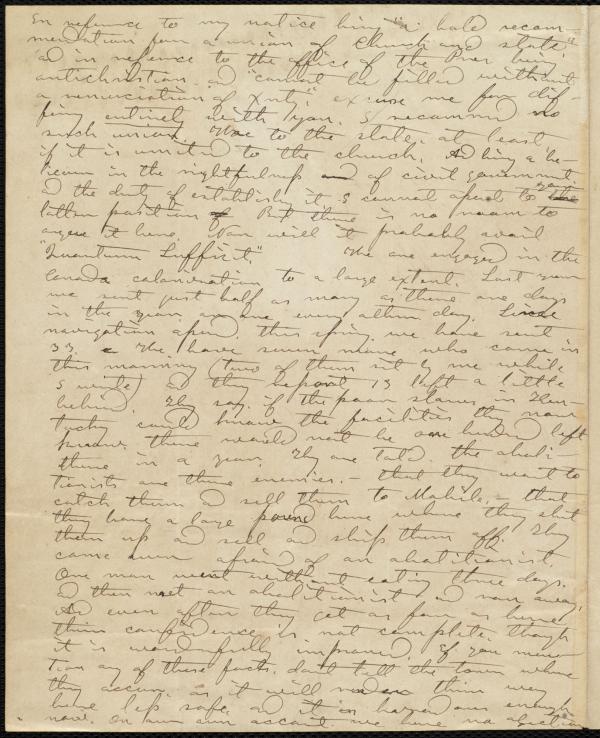 In reference to my notice being "a bold recom-
mendation for a union of church and state,"
and in reference to the office of the Peer being
antichristian and "cannot be filled without
a renunciation of Xnty," excuse me for dif-
fering entirely with you. I recommend no
such union. Woe to the state, at least
if it is united to the church. And being a be-
liever in the rightfulness and of civil government
and the duty of establishing it I cannot assent to your
latter position But there is no room to
argue it here. Nor will it probably avail
"Quantum Sufficit." We are engaged in the
Canada colonization to a large extent. Last year
we sent just half as many as there are days
in the year, or one every other day. Since
navigation opened this spring we have sent
33. We have seven more who came in
this morning (two of them sit by me while
I write) and they report 13 left a little
behind. They say if the poor slaves in Ken-
tucky could know the facilities they now
know there would not be one hundred left
there in a year. They are told the aboli-
tionists are there enemies, - that they want to
catch them and sell them to Mobile, - that
they have a large pound here where they shut
them up and sell and ship them off. They
came even afraid of an abolitionist.
One man went without eating three days,
and then met an abolitionist and ran away.
And even after they get as far as here
their confidence is not complete, though
it is wonderfully improved. If you men-
tion any of these facts, don't tell the town where
they occur, as it will render their way
here less safe, and it is hazardous enough
now. On our own account we have no objection